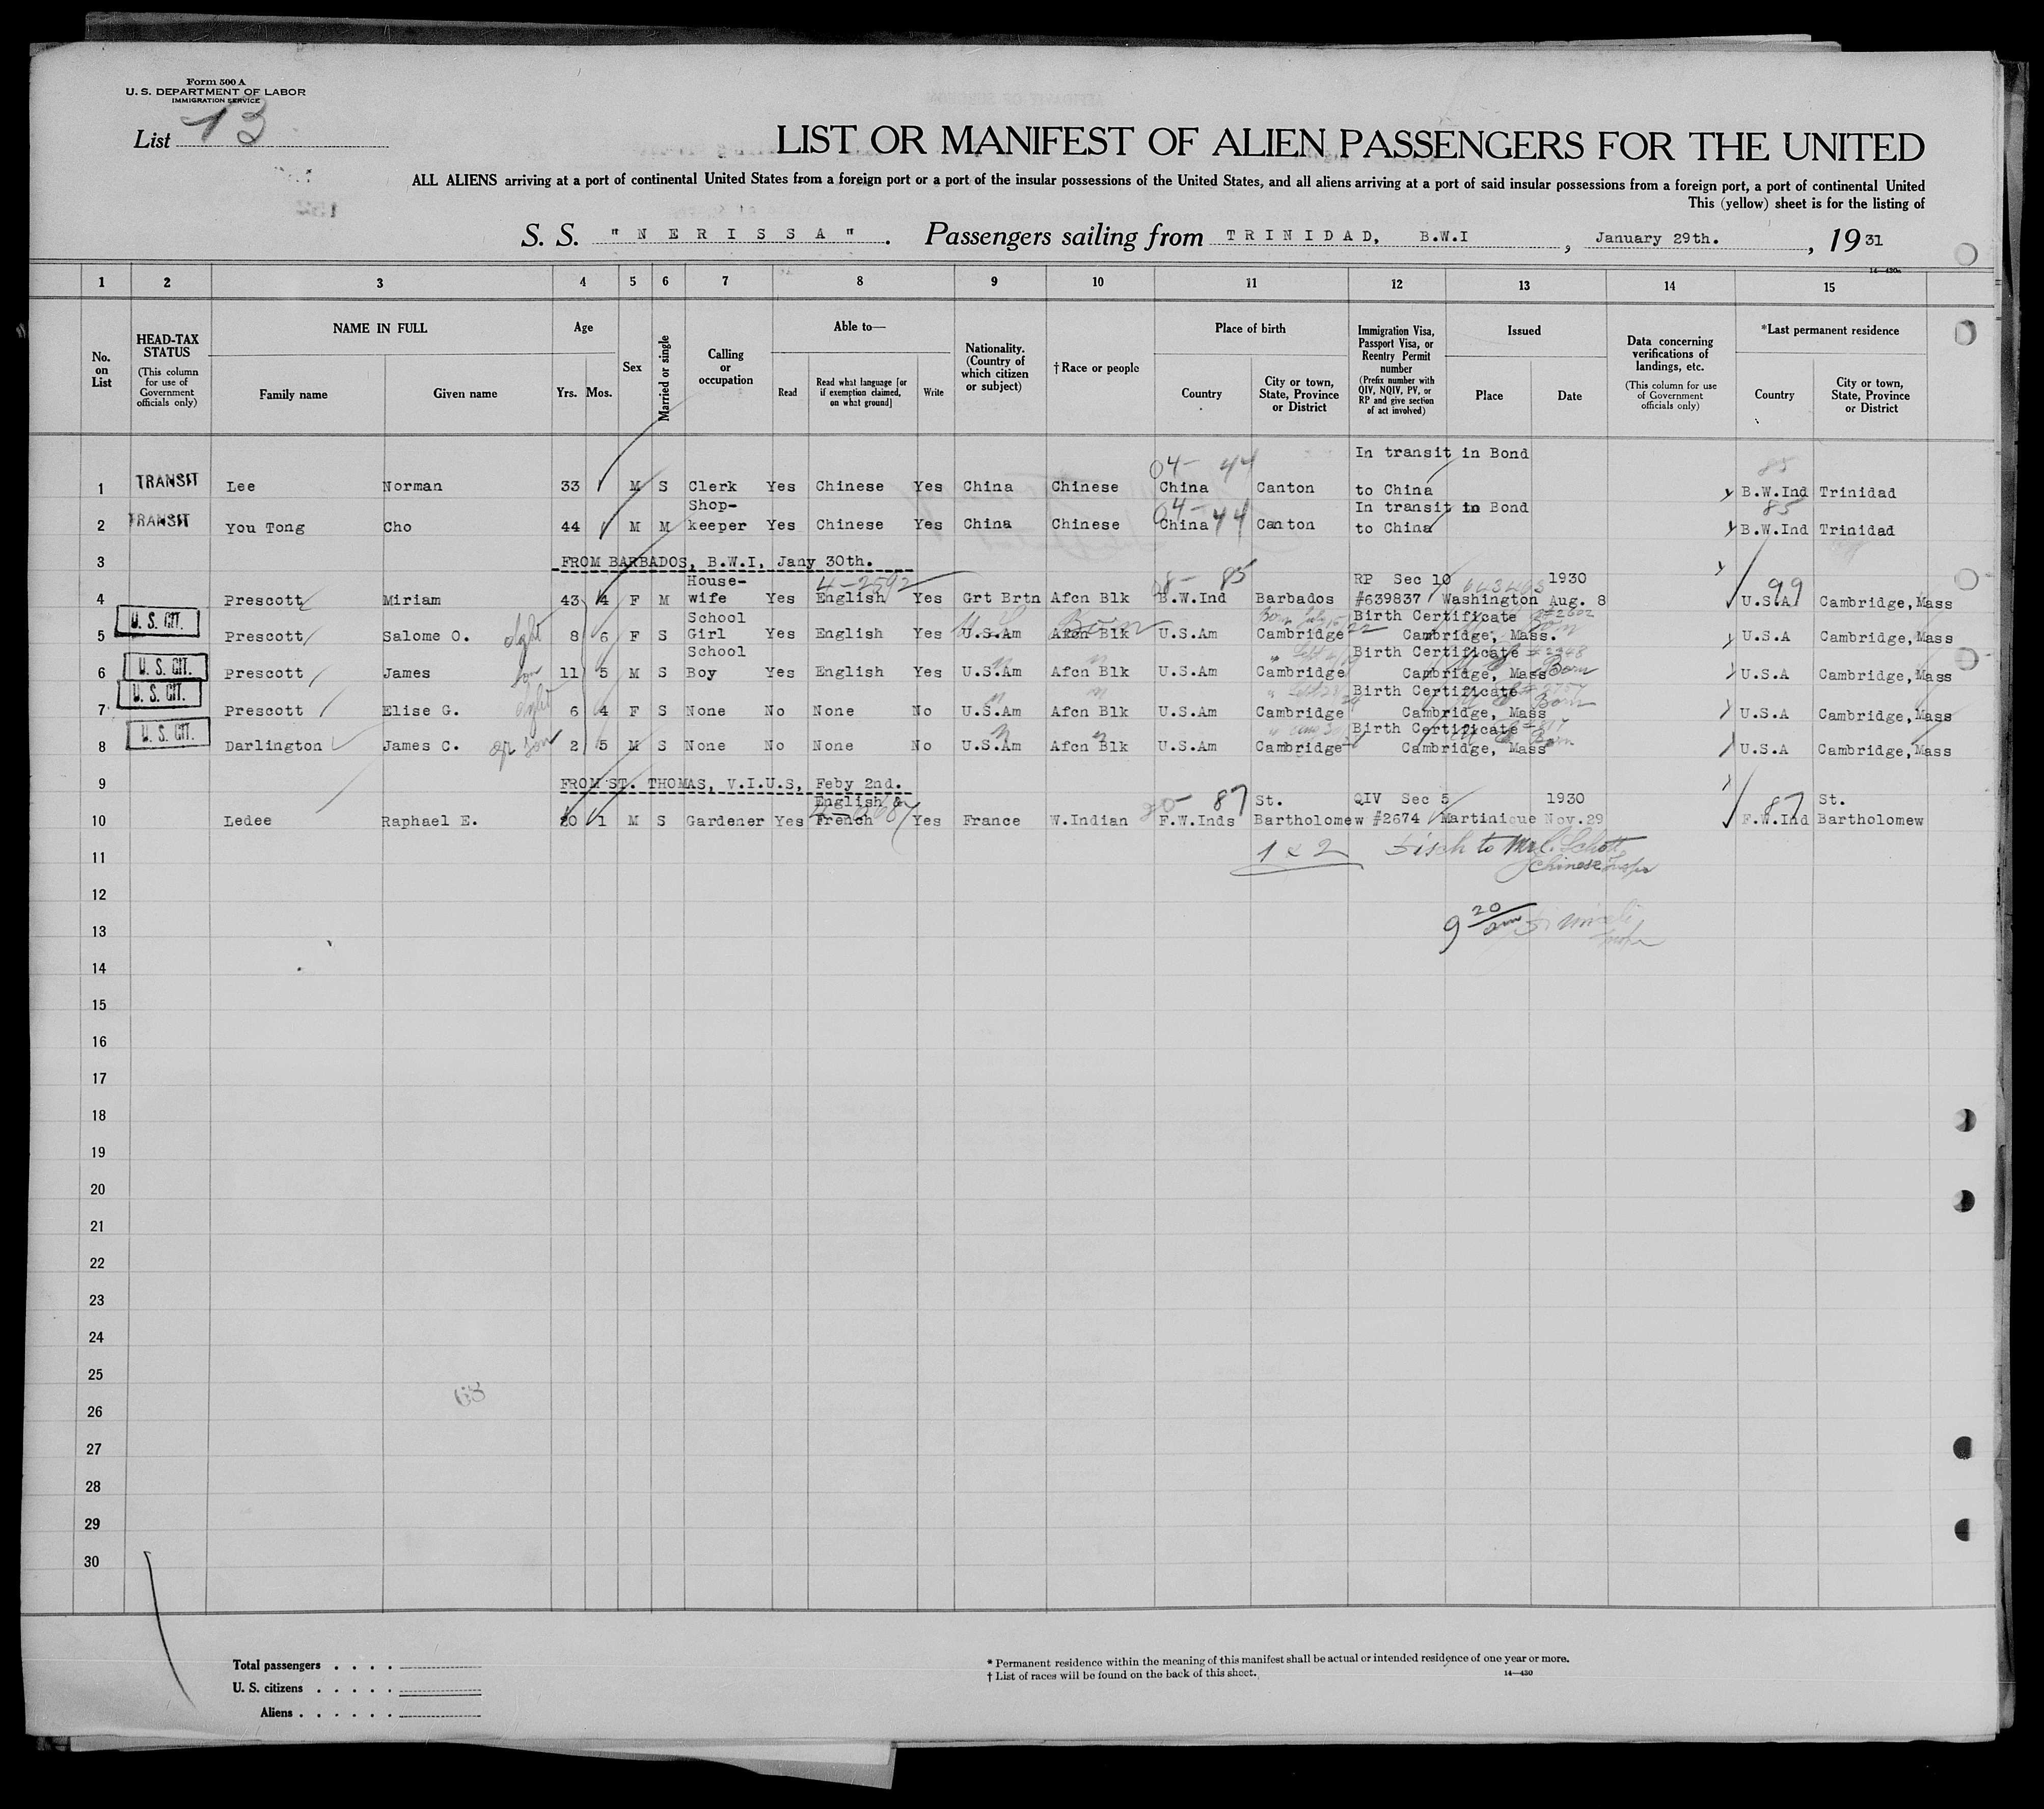 Form 500 A
U. S. DEPARTMENT OF LABOR
IMMIGRATION SERVICE
List 13
LIST OR MANIFEST OF ALIEN PASSENGERS FOR THE UNITED
ALL ALIENS arriving at a port of continental United States from a foreign port or a port of the insular possessions of the United States, and all aliens arriving at a port of said insular possessions from a foreign port, a port of continental United
This (yellow) sheet is for the listing of
S. S. "NERISSA". Passengers sailing from TRINIDAD, B.W.I, January 29th., 1931
14-430a
1 2 3 4 5 6 7 8 9 10 11 12 13 14 15
No. on List
HEAD-TAX STATUS (This column for use of Government officials only)
NAME IN FULL
Family name Given name
Age
Yrs. Mos.
Sex
Married or single
Calling or occupation
Able to—
Read Read what language [or if exemption claimed, on what ground] Write
Nationality. (Country of which citizen or subject)
†Race or people
Place of birth
Country City or town, State, Province or District
Immigration Visa, Passport Visa, or Reentry Permit number (Prefix number with QIV, NQIV, PV, or RP and give section of act involved)
Issued
Place Date
Data concerning verifications of landings, etc. (This column for use of Government officials only)
*Last permanent residence
Country City or town, State, Province or District
In transit in Bond
04- 44 85
1 TRANSIT Lee Norman 33 M S Clerk Yes Chinese Yes China Chinese China Canton to China B.W.Ind Trinidad
Shop- In transit in Bond
04- 44 85
2 TRANSIT You Tong Cho 44 M M keeper Yes Chinese Yes China Chinese China Canton to China B.W.Ind Trinidad
3 FROM BARBADOS, B.W.I, Jany 30th.
House- 4-2592 08- 85 RP Sec 10 643463 1930 99
4 Prescott Miriam 43 4 F M wife Yes English Yes Grt Brtn Afcn Blk B.W.Ind Barbados #639837 Washington Aug. 8 U.S.A Cambridge, Mass
School Born July 15/22 Birth Certificate
5 U. S. CIT. Prescott Salome O. dght 8 6 F S Girl Yes English Yes U.S.Am Afcn Blk Born U.S.Am Cambridge Cambridge, Mass. U.S.A Cambridge, Mass
School Birth Certificate
6 U. S. CIT. Prescott James son 11 5 M S Boy Yes English Yes U.S.Am Afcn Blk U.S.Am Cambridge Cambridge, Mass Born U.S.A Cambridge, Mass
Birth Certificate
7 U. S. CIT. Prescott Elise G. dght 6 4 F S None No None No U.S.Am Afcn Blk U.S.Am Cambridge Cambridge, Mass Born U.S.A Cambridge, Mass
Birth Certificate
8 U. S. CIT. Darlington James C. son 2 5 M S None No None No U.S.Am Afcn Blk U.S.Am Cambridge Cambridge, Mass Born U.S.A Cambridge, Mass
9 FROM ST. THOMAS, V.I.U.S, Feby 2nd.
English & 87 St. QIV Sec 5 1930 87 St.
10 Ledee Raphael E. 20 1 M S Gardener Yes French Yes France W.Indian F.W.Inds Bartholomew #2674 Martinique Nov.29 F.W.Ind Bartholomew
11 1 & 2 Disch to Mr C. Schott
Chinese Inspr
12
9 20 am
13
14
15
16
17
18
19
20
21
22
23
24
25
68
26
27
28
29
30
Total passengers . . . .
U. S. citizens . . . . .
Aliens . . . . . .
* Permanent residence within the meaning of this manifest shall be actual or intended residence of one year or more.
† List of races will be found on the back of this sheet.
14-430